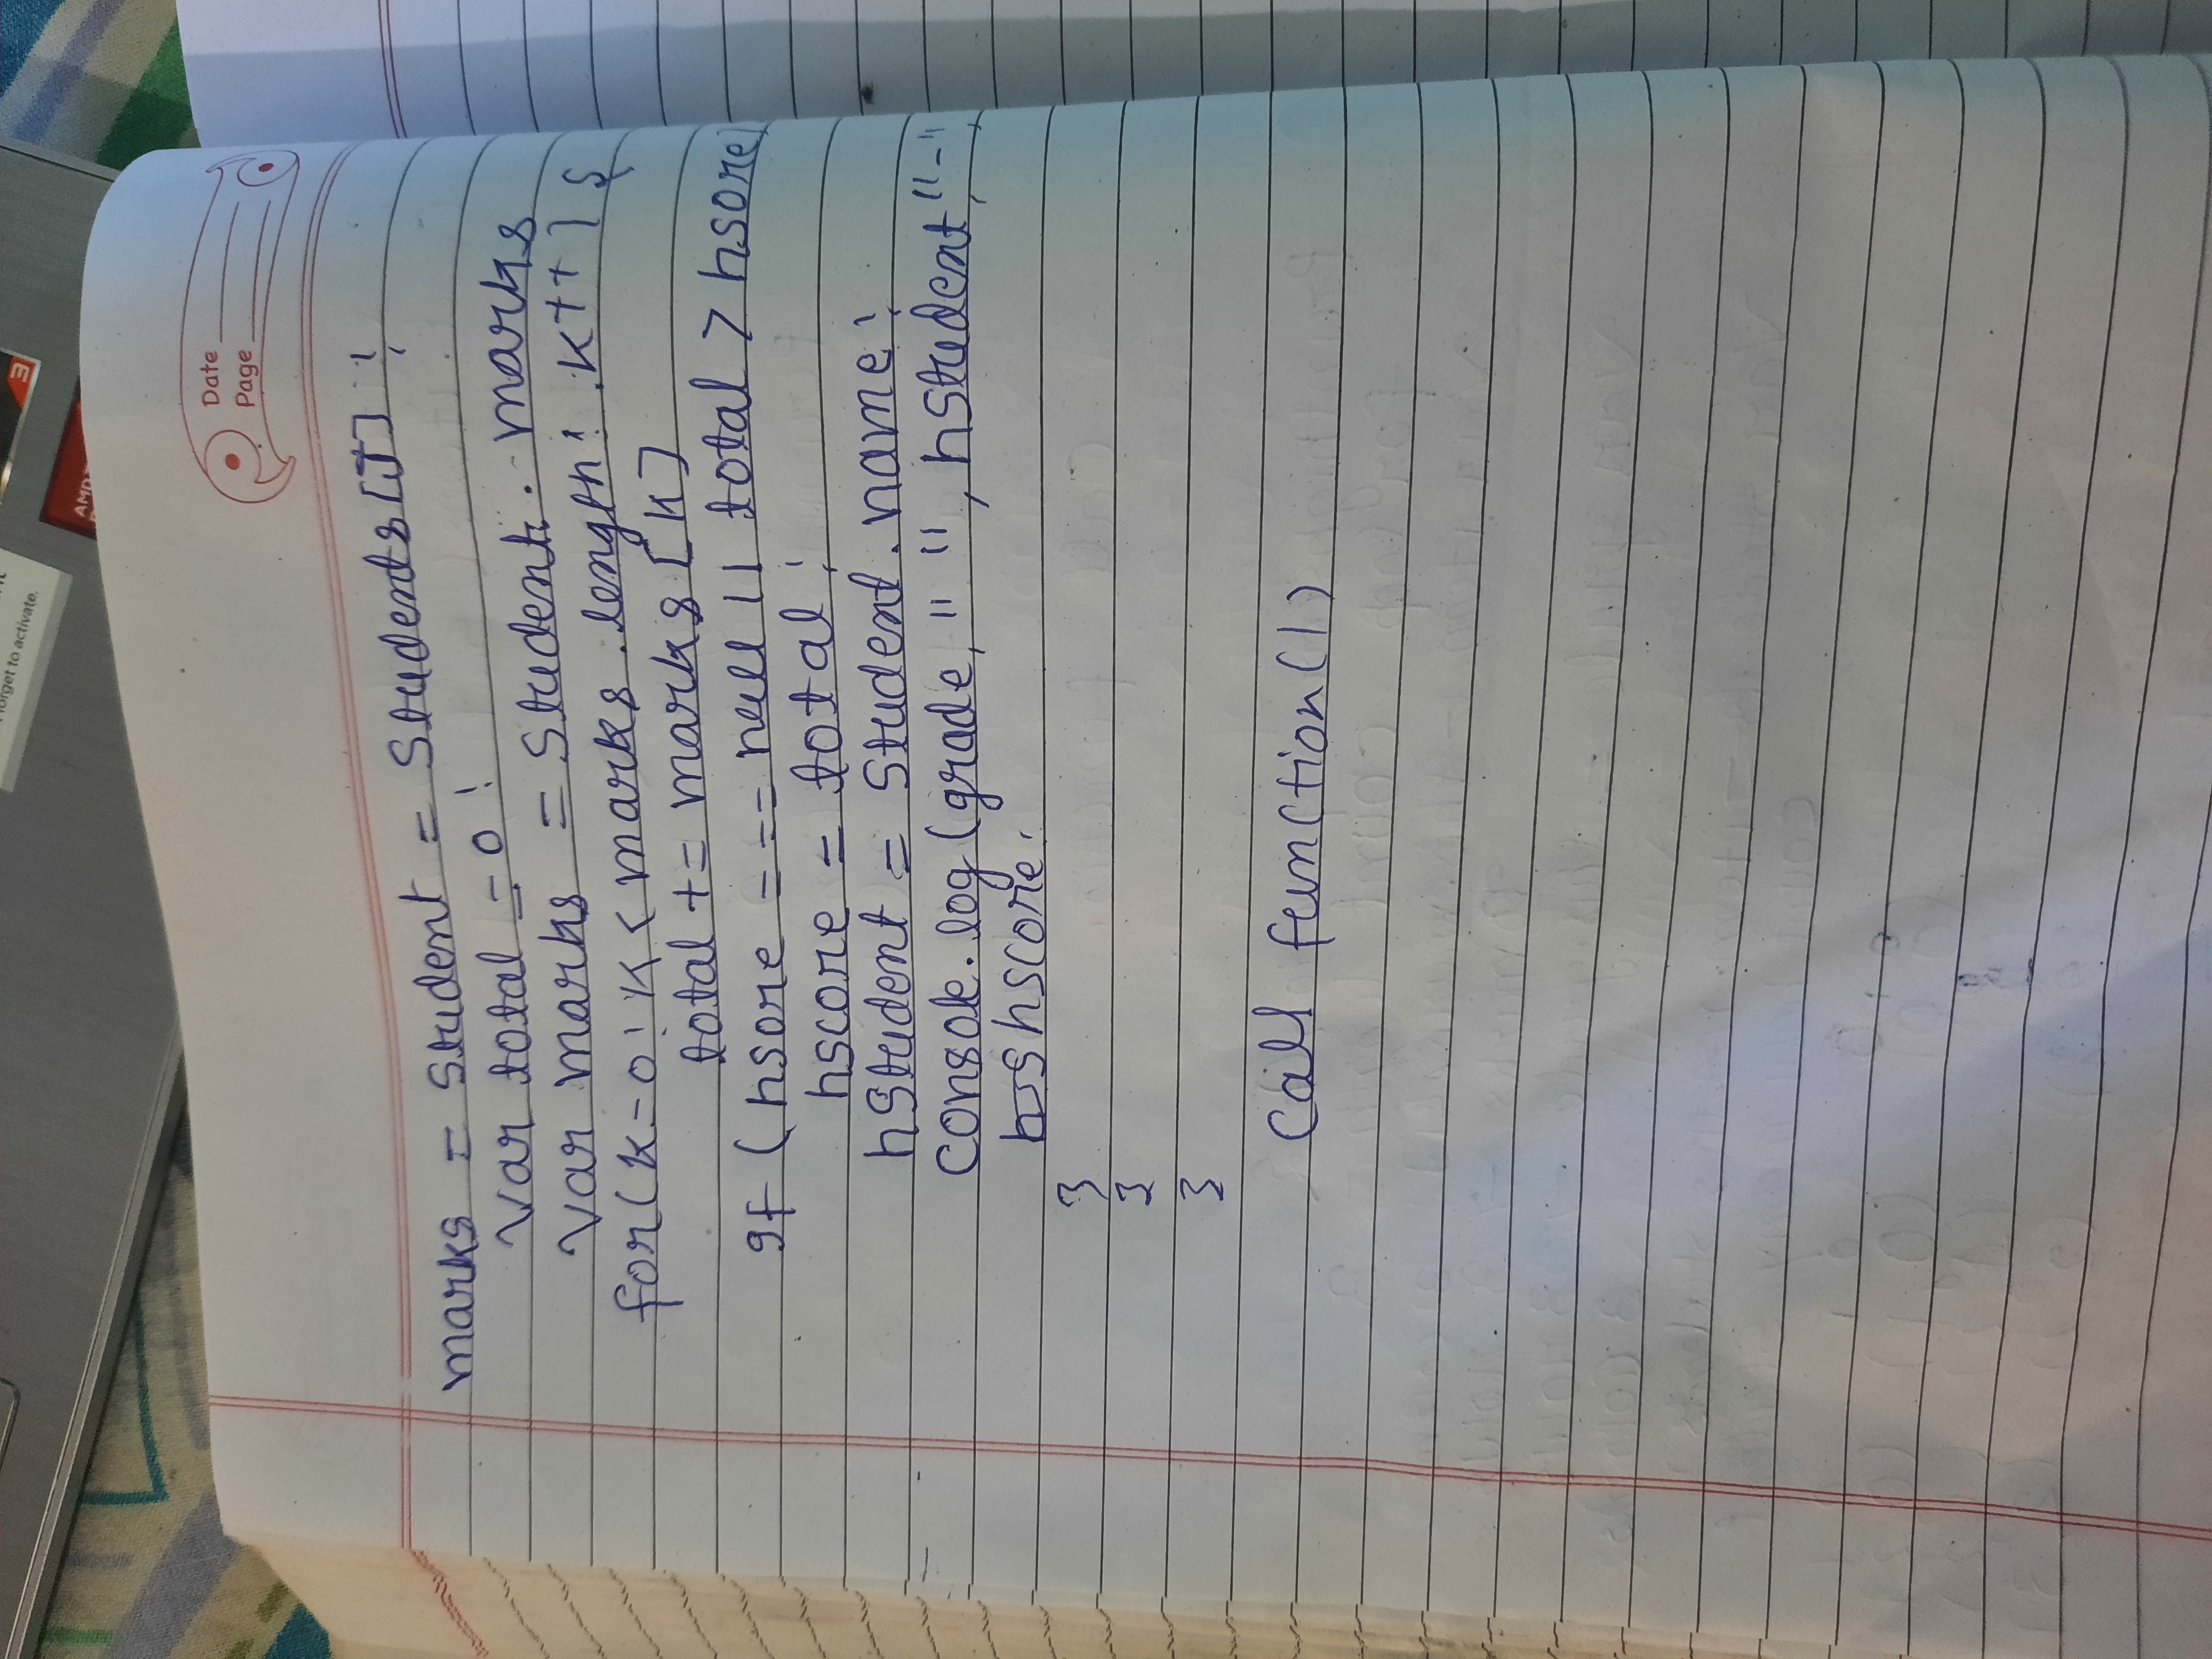 forget to activate.
3
AMD
Date
Page
marks = student = students[J];
var total = 0;
var marks = student. marks
for(k=0; k < marks.length; k++) {
total += marks [k]
If (hsore === null || total > hsore)
hscore = total;
hstudent = student.name;
console.log(grade, " ", hstudent, "-",
hscore;
}
}
}
Call function()